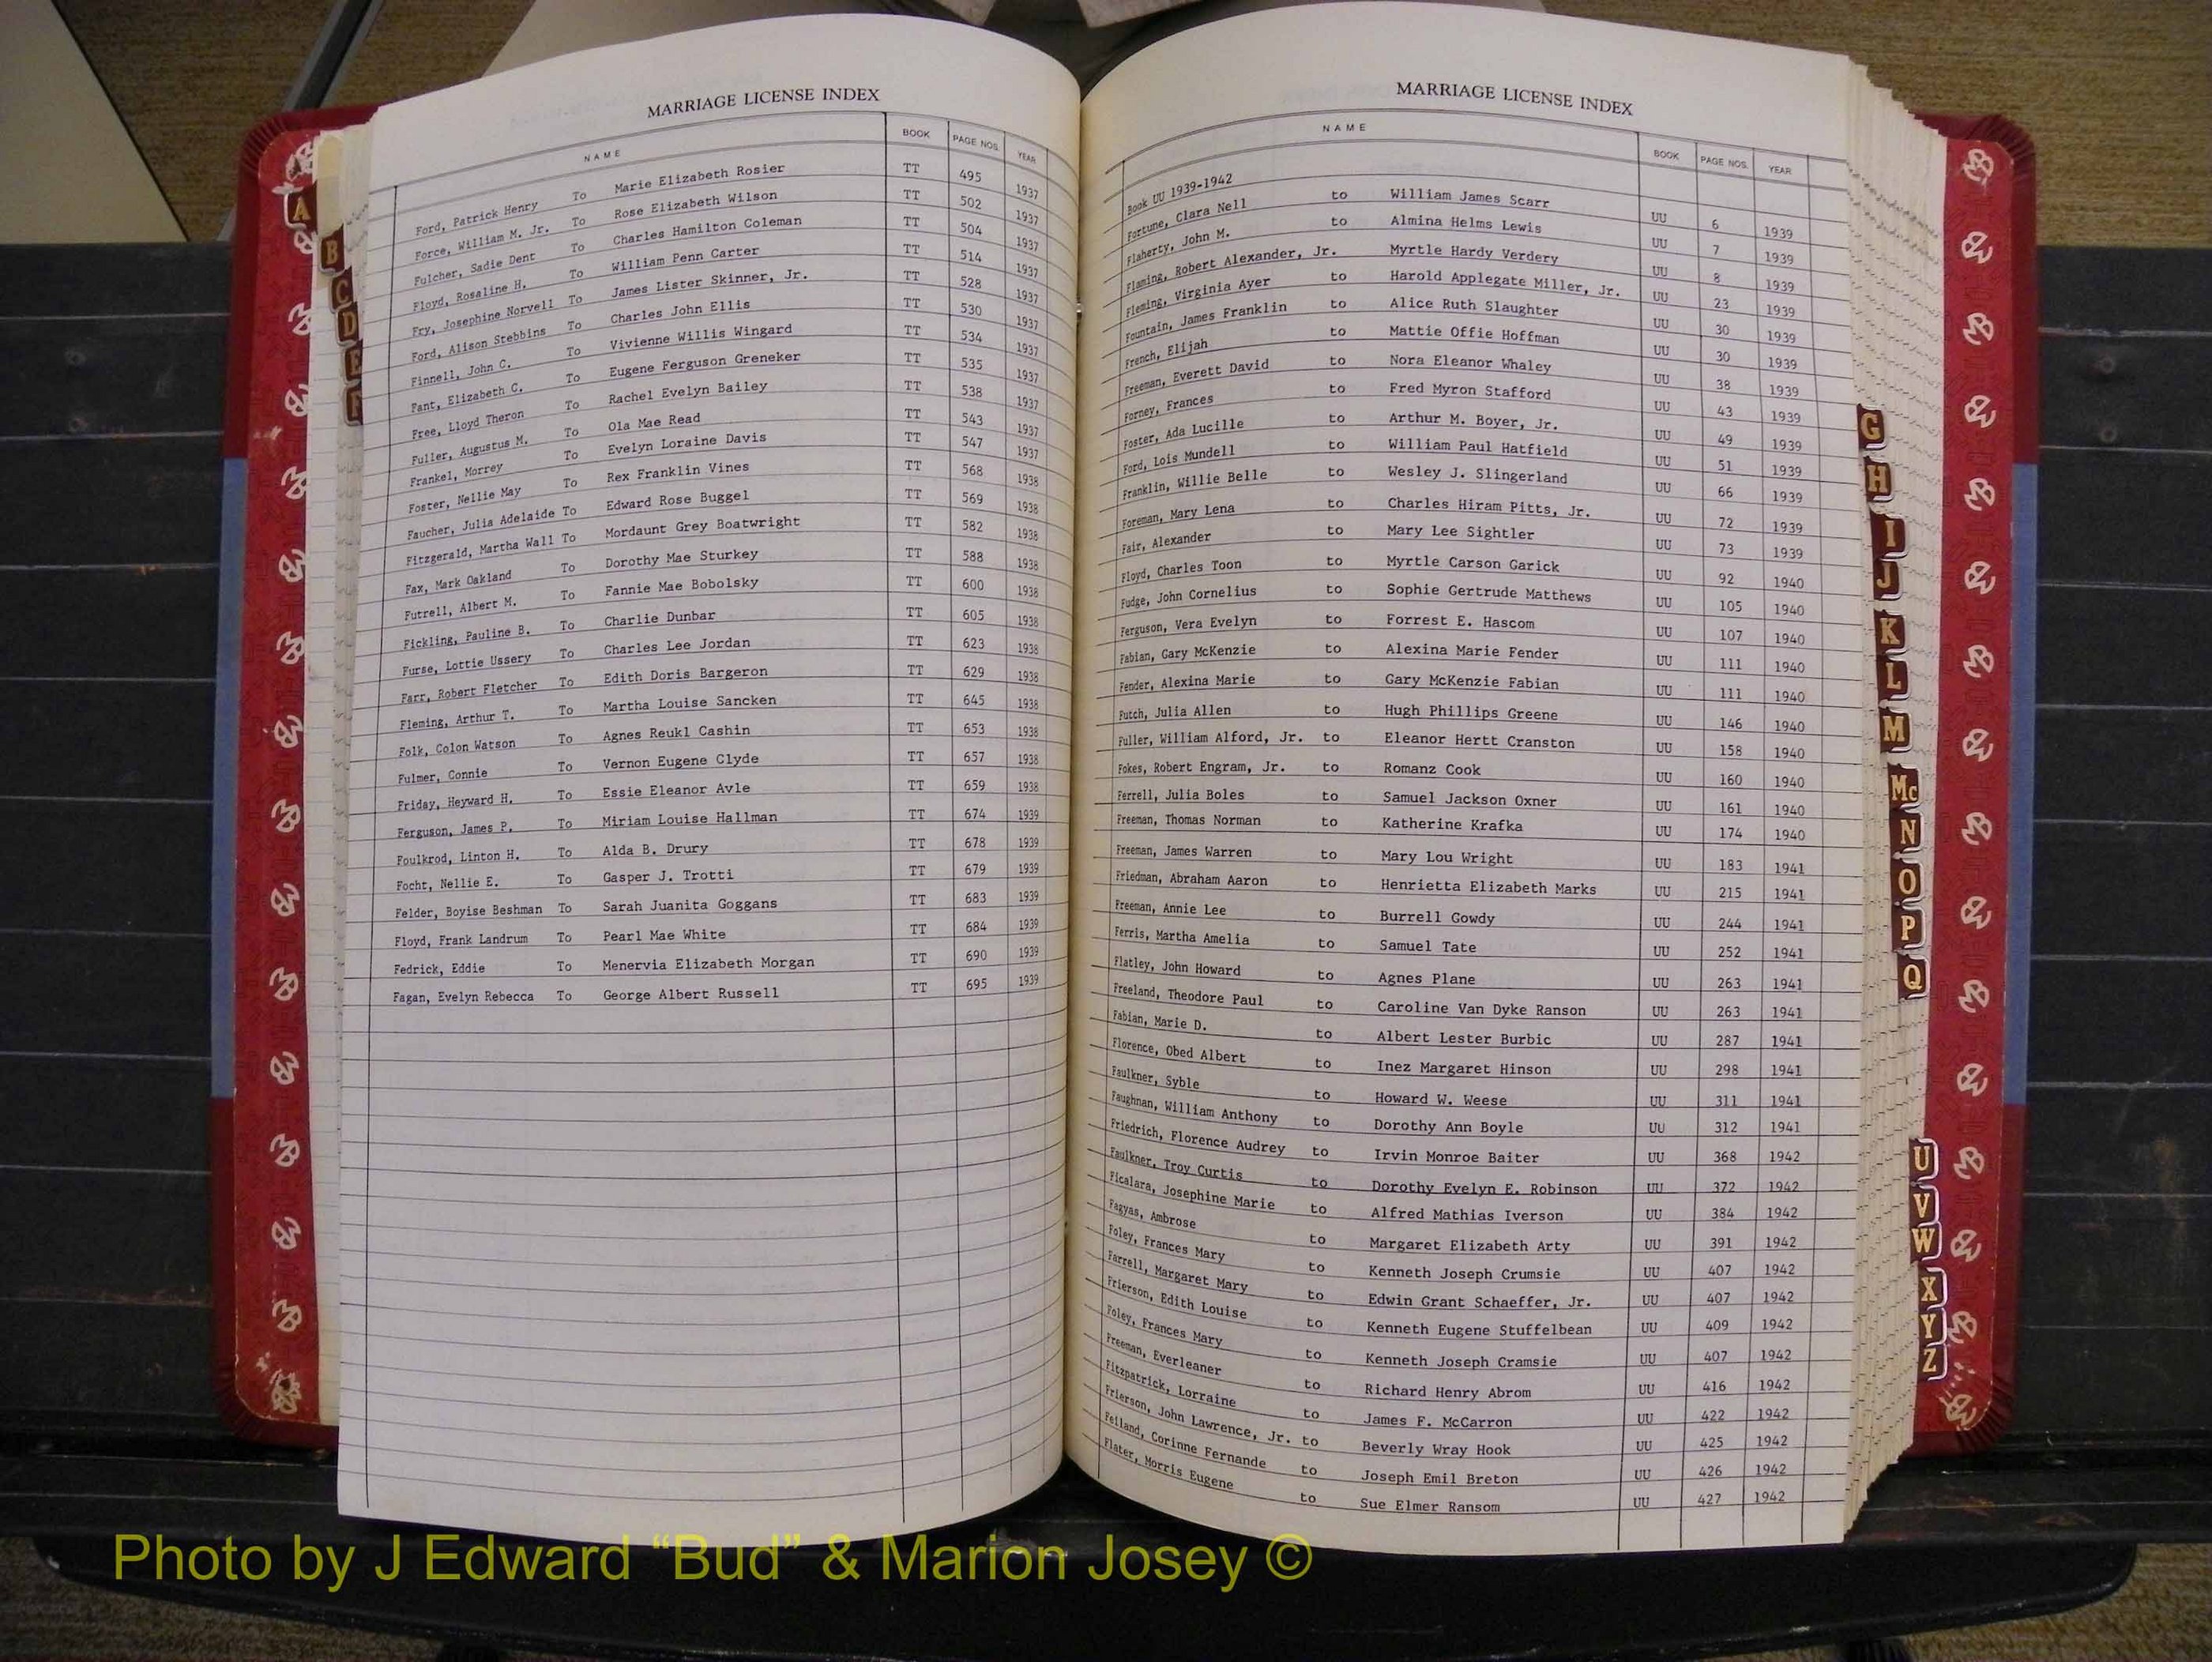 MARRIAGE LICENSE INDEX
NAME BOOK PAGE NOS. YEAR
Ford, Patrick Henry To Marie Elizabeth Rosier TT 495 1937
Force, William M. Jr. To Rose Elizabeth Wilson TT 502 1937
Fulcher, Sadie Dent To Charles Hamilton Coleman TT 504 1937
Floyd, Rosaline H. To William Penn Carter TT 514 1937
Fry, Josephine Norvell To James Lister Skinner, Jr. TT 528 1937
Ford, Alison Stebbins To Charles John Ellis TT 530 1937
Finnell, John C. To Vivienne Willis Wingard TT 534 1937
Fant, Elizabeth C. To Eugene Ferguson Greneker TT 535 1937
Free, Lloyd Theron To Rachel Evelyn Bailey TT 538 1937
Fuller, Augustus M. To Ola Mae Read TT 543 1937
Frankel, Morrey To Evelyn Loraine Davis TT 547 1937
Foster, Nellie May To Rex Franklin Vines TT 568 1938
Faucher, Julia Adelaide To Edward Rose Buggel TT 569 1938
Fitzgerald, Martha Wall To Mordaunt Grey Boatwright TT 582 1938
Fax, Mark Oakland To Dorothy Mae Sturkey TT 588 1938
Futrell, Albert M. To Fannie Mae Bobolsky TT 600 1938
Fickling, Pauline B. To Charlie Dunbar TT 605 1938
Furse, Lottie Ussery To Charles Lee Jordan TT 623 1938
Farr, Robert Fletcher To Edith Doris Bargeron TT 629 1938
Fleming, Arthur T. To Martha Louise Sancken TT 645 1938
Folk, Colon Watson To Agnes Reukl Cashin TT 653 1938
Fulmer, Connie To Vernon Eugene Clyde TT 657 1938
Friday, Heyward H. To Essie Eleanor Avle TT 659 1938
Ferguson, James P. To Miriam Louise Hallman TT 674 1939
Foulkrod, Linton H. To Alda B. Drury TT 678 1939
Focht, Nellie E. To Gasper J. Trotti TT 679 1939
Felder, Boyise Beshman To Sarah Juanita Goggans TT 683 1939
Floyd, Frank Landrum To Pearl Mae White TT 684 1939
Fedrick, Eddie To Menervia Elizabeth Morgan TT 690 1939
Fagan, Evelyn Rebecca To George Albert Russell TT 695 1939
A
B
C
D
E
F
MARRIAGE LICENSE INDEX
NAME BOOK PAGE NOS. YEAR
Book UU 1939-1942
Fortune, Clara Nell to William James Scarr UU 6 1939
Flaherty, John M. to Almina Helms Lewis UU 7 1939
Flaming, Robert Alexander, Jr. Myrtle Hardy Verdery UU 8 1939
Fleming, Virginia Ayer to Harold Applegate Miller, Jr. UU 23 1939
Fountain, James Franklin to Alice Ruth Slaughter UU 30 1939
French, Elijah to Mattie Offie Hoffman UU 30 1939
Freeman, Everett David to Nora Eleanor Whaley UU 38 1939
Forney, Frances to Fred Myron Stafford UU 43 1939
Foster, Ada Lucille to Arthur M. Boyer, Jr. UU 49 1939
Ford, Lois Mundell to William Paul Hatfield UU 51 1939
Franklin, Willie Belle to Wesley J. Slingerland UU 66 1939
Foreman, Mary Lena to Charles Hiram Pitts, Jr. UU 72 1939
Fair, Alexander to Mary Lee Sightler UU 73 1939
Floyd, Charles Toon to Myrtle Carson Garick UU 92 1940
Fudge, John Cornelius to Sophie Gertrude Matthews UU 105 1940
Ferguson, Vera Evelyn to Forrest E. Hascom UU 107 1940
Fabian, Gary McKenzie to Alexina Marie Fender UU 111 1940
Fender, Alexina Marie to Gary McKenzie Fabian UU 111 1940
Futch, Julia Allen to Hugh Phillips Greene UU 146 1940
Fuller, William Alford, Jr. to Eleanor Hertt Cranston UU 158 1940
Fokes, Robert Engram, Jr. to Romanz Cook UU 160 1940
Ferrell, Julia Boles to Samuel Jackson Oxner UU 161 1940
Freeman, Thomas Norman to Katherine Krafka UU 174 1940
Freeman, James Warren to Mary Lou Wright UU 183 1941
Friedman, Abraham Aaron to Henrietta Elizabeth Marks UU 215 1941
Freeman, Annie Lee to Burrell Gowdy UU 244 1941
Ferris, Martha Amelia to Samuel Tate UU 252 1941
Flatley, John Howard to Agnes Plane UU 263 1941
Freeland, Theodore Paul to Caroline Van Dyke Ranson UU 263 1941
Fabian, Marie D. to Albert Lester Burbic UU 287 1941
Florence, Obed Albert to Inez Margaret Hinson UU 298 1941
Faulkner, Syble to Howard W. Weese UU 311 1941
Faughnan, William Anthony to Dorothy Ann Boyle UU 312 1941
Friedrich, Florence Audrey to Irvin Monroe Baiter UU 368 1942
Faulkner, Troy Curtis to Dorothy Evelyn E. Robinson UU 372 1942
Ficalara, Josephine Marie to Alfred Mathias Iverson UU 384 1942
Fagyas, Ambrose to Margaret Elizabeth Arty UU 391 1942
Foley, Frances Mary to Kenneth Joseph Crumsie UU 407 1942
Farrell, Margaret Mary to Edwin Grant Schaeffer, Jr. UU 407 1942
Frierson, Edith Louise to Kenneth Eugene Stuffelbean UU 409 1942
Foley, Frances Mary to Kenneth Joseph Cramsie UU 407 1942
Freeman, Everleaner to Richard Henry Abrom UU 416 1942
Fitzpatrick, Lorraine to James F. McCarron UU 422 1942
Frierson, John Lawrence, Jr. to Beverly Wray Hook UU 425 1942
Feiland, Corinne Fernande to Joseph Emil Breton UU 426 1942
Flater, Morris Eugene to Sue Elmer Ransom UU 427 1942
G
H
I
J
K
L
M
Mc
N
O
P
Q
U
V
W
X
Y
Z
Photo by J Edward “Bud” & Marion Josey ©